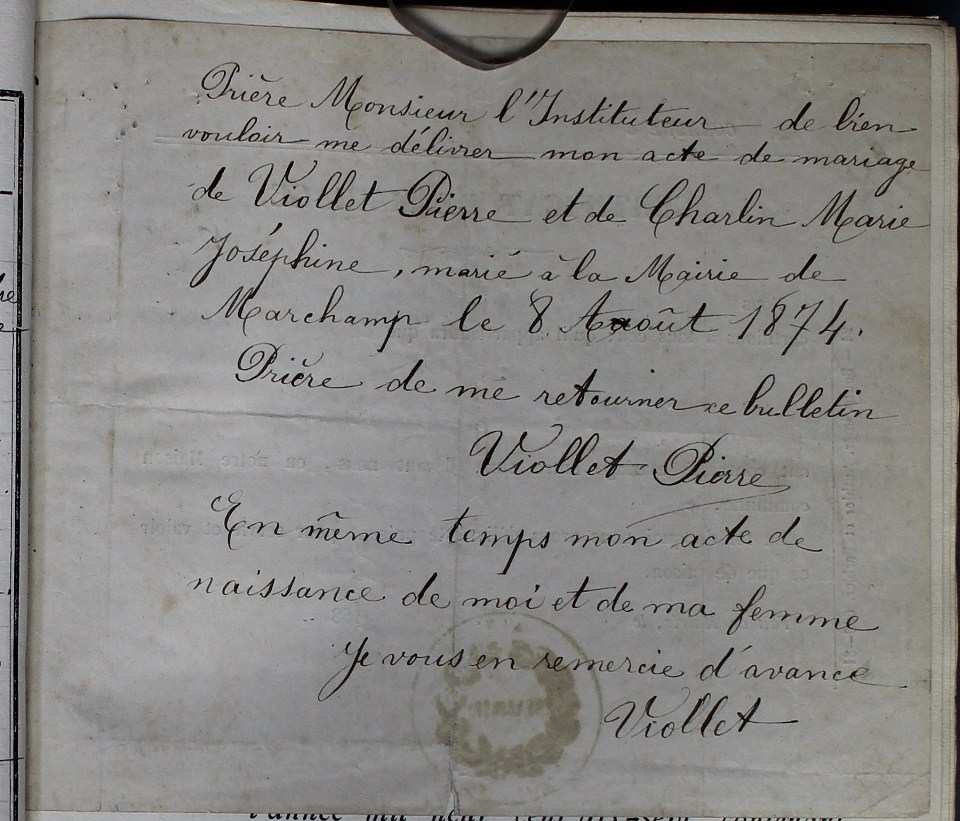 Prière Monsieur l'Instituteur de bien
vouloir me délivrer mon acte de mariage
de Viollet Pierre et de Charlin Marie
Joséphine, marié à la Mairie de
Marchamp le 8 Aoaoût 1874.
Prière de me retourner ce bulletin
Viollet Pierre
En même temps mon acte de
naissance de moi et de ma femme
Je vous en remercie d'avance
Viollet